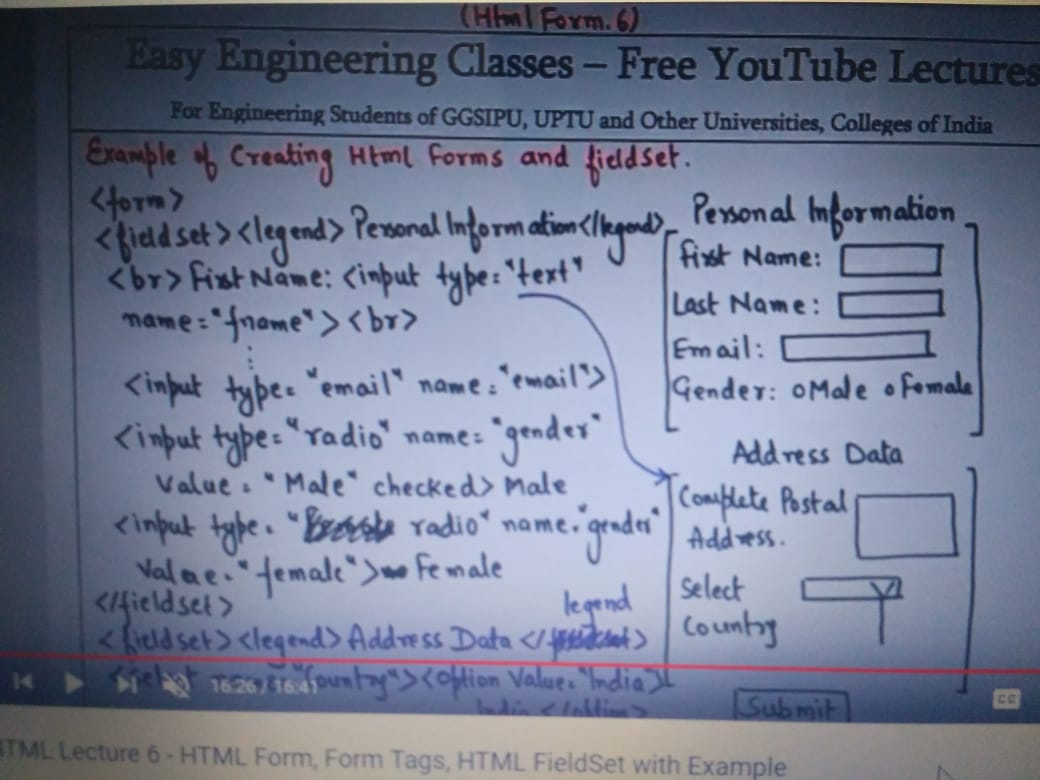 (Html Form. 6)
Easy Engineering Classes – Free YouTube Lectures
For Engineering Students of GGSIPU, UPTU and Other Universities, Colleges of India
Example of Creating Html Forms and fieldset.
<form>
<fieldset><legend> Personal Information</legend>
<br> First Name: <input type="text"
name="fname"><br>
<input type="email" name="email">
<input type="radio" name="gender"
Value="Male" checked> Male
<input type="radio" name="gender"
Value="female"> Female
</fieldset>
<fieldset><legend> Address Data </legend>
"Country"><option Value="India">
India </option>
Personal Information
First Name:
Last Name:
Email:
Gender: Male Female
Address Data
Complete Postal
Address.
Select
Country
Submit
16:26 / 16:41
CC
HTML Lecture 6 - HTML Form, Form Tags, HTML FieldSet with Example